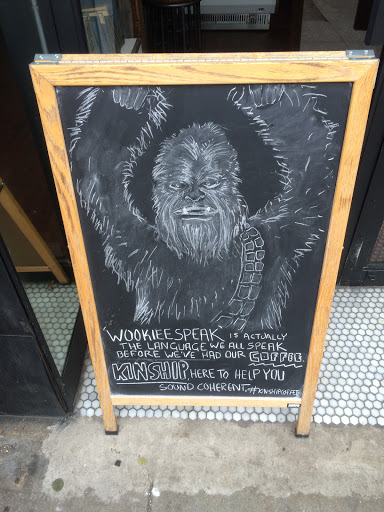 WOOKIEESPEAK IS ACTUALLY
THE LANGUAGE WE ALL SPEAK
BEFORE WE'VE HAD OUR COFFEE.
KINSHIP HERE TO HELP YOU
SOUND COHERENT. #KINSHIPCOFFEE